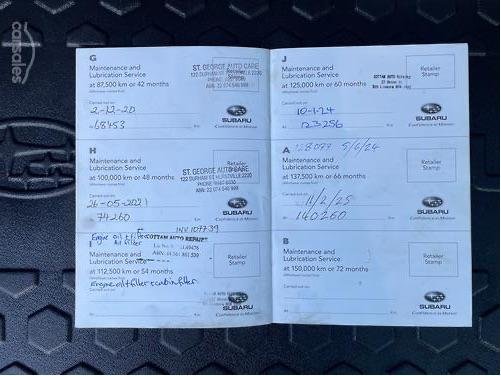 carsales
G
Maintenance and
Lubrication Service
at 87,500 km or 42 months
(Whichever comes first)
ST. GEORGE AUTO CARE
Retailer
Stamp
Carried out on:
2-12-20
68453
Km
SUBARU
Confidence in Motion
H
Maintenance and
Lubrication Service
at 100,000 km or 48 months
(Whichever comes first)
Retailer
ST. GEORGE AUTO CARE
Carried out on:
26-05-2021
74260
Km
SUBARU
INV 107739
Engine oil + filter
Air filter
COTTAM AUTO REPAIRS
I
Maintenance and
Lubrication Service
at 112,500 km or 54 months
(Whichever comes first)
Retailer
Stamp
Carried out on:
Engine oil + filter + cabin filter
SUBARU
Confidence in Motion
J
Maintenance and
Lubrication Service
at 125,000 km or 60 months
(Whichever comes first)
COTTAM AUTO REPAIRS
Retailer
Stamp
Carried out on:
10-1-24
123256
Km
SUBARU
Confidence in Motion
128099 5/6/24
A
Maintenance and
Lubrication Service
at 137,500 km or 66 months
(Whichever comes first)
Retailer
Stamp
Carried out on:
11/2/25
140260
Km
SUBARU
Confidence in Motion
B
Maintenance and
Lubrication Service
at 150,000 km or 72 months
(Whichever comes first)
Retailer
Stamp
Carried out on:
Km
SUBARU
Confidence in Motion